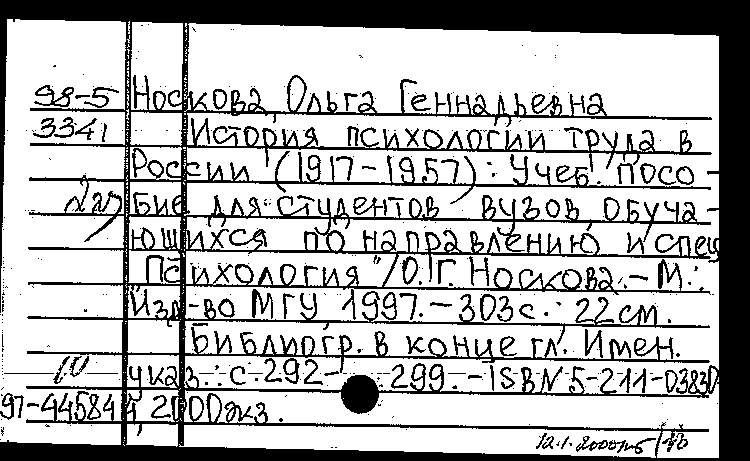 98-5 Носкова, Ольга Геннадьевна
3341 История психологии труда в
России (1917-1957): Учеб. посо-
бие для студентов вузов, обуча-
ющихся по направлению и спец
"Психология"/О.Г. Носкова.-М.:
Изд-во МГУ, 1997.-303с.; 22см.
Библиогр. в конце гл. Имен.
10 указ.: с.292-299.-ISBN 5-211-03830
97-44584 2000экз.